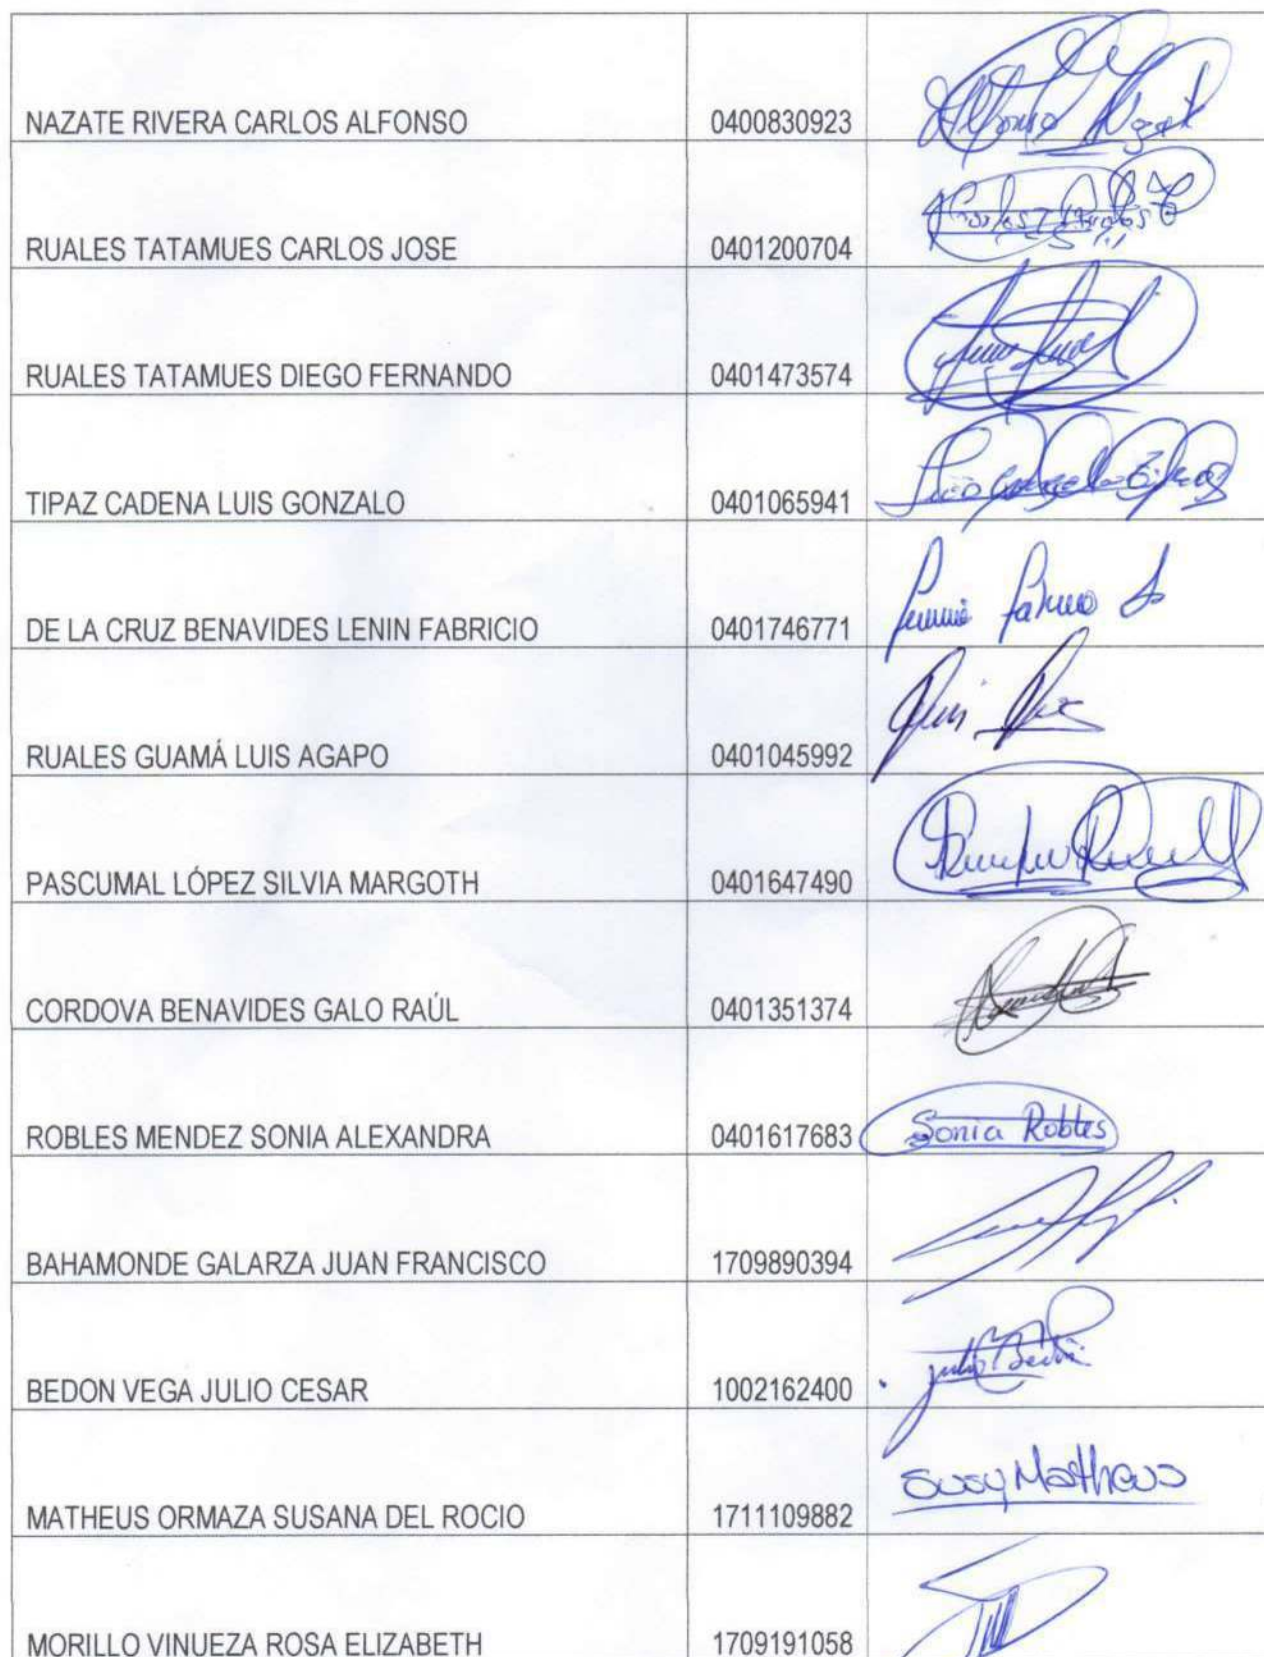 NAZATE RIVERA CARLOS ALFONSO 0400830923
RUALES TATAMUES CARLOS JOSE 0401200704
RUALES TATAMUES DIEGO FERNANDO 0401473574
TIPAZ CADENA LUIS GONZALO 0401065941
DE LA CRUZ BENAVIDES LENIN FABRICIO 0401746771
RUALES GUAMÁ LUIS AGAPO 0401045992
PASCUMAL LÓPEZ SILVIA MARGOTH 0401647490
CORDOVA BENAVIDES GALO RAÚL 0401351374
ROBLES MENDEZ SONIA ALEXANDRA 0401617683 Sonia Robles
BAHAMONDE GALARZA JUAN FRANCISCO 1709890394
BEDON VEGA JULIO CESAR 1002162400 Julio Bedón
MATHEUS ORMAZA SUSANA DEL ROCIO 1711109882 Susy Matheus
MORILLO VINUEZA ROSA ELIZABETH 1709191058